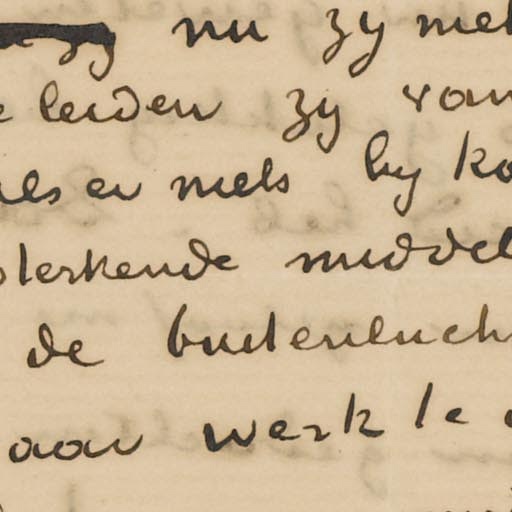 zy nu zy met
leiden zy van
als er niets by ko
sterkende middel
de buitenluch
aan werk te